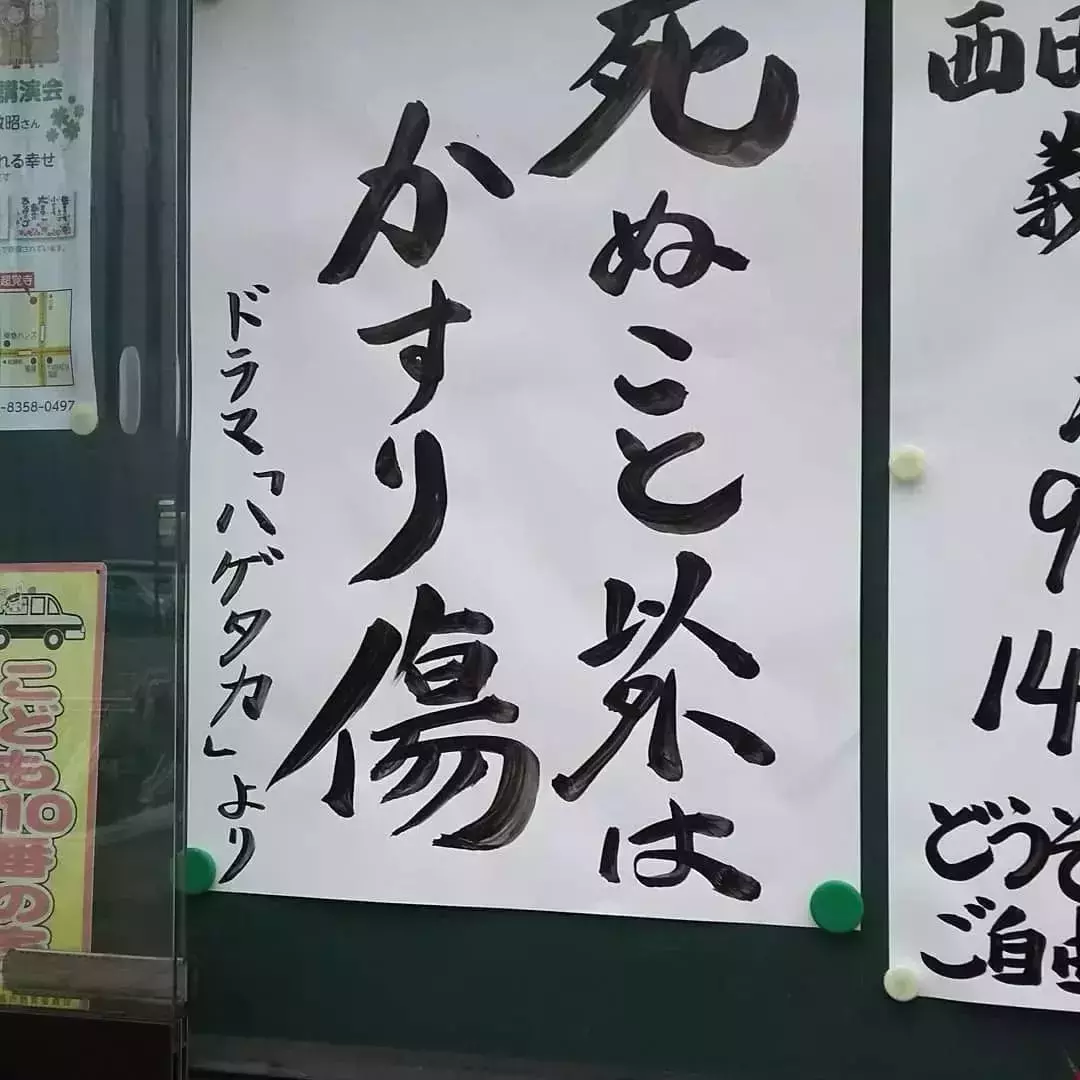 死ぬこと以外は
かすり傷
ドラマ「ハゲタカ」より
西田
義
9
14
どうぞ
ご自由
講演会
敏昭さん
れる幸せ
超覚寺
-8358-0497
こども110番の